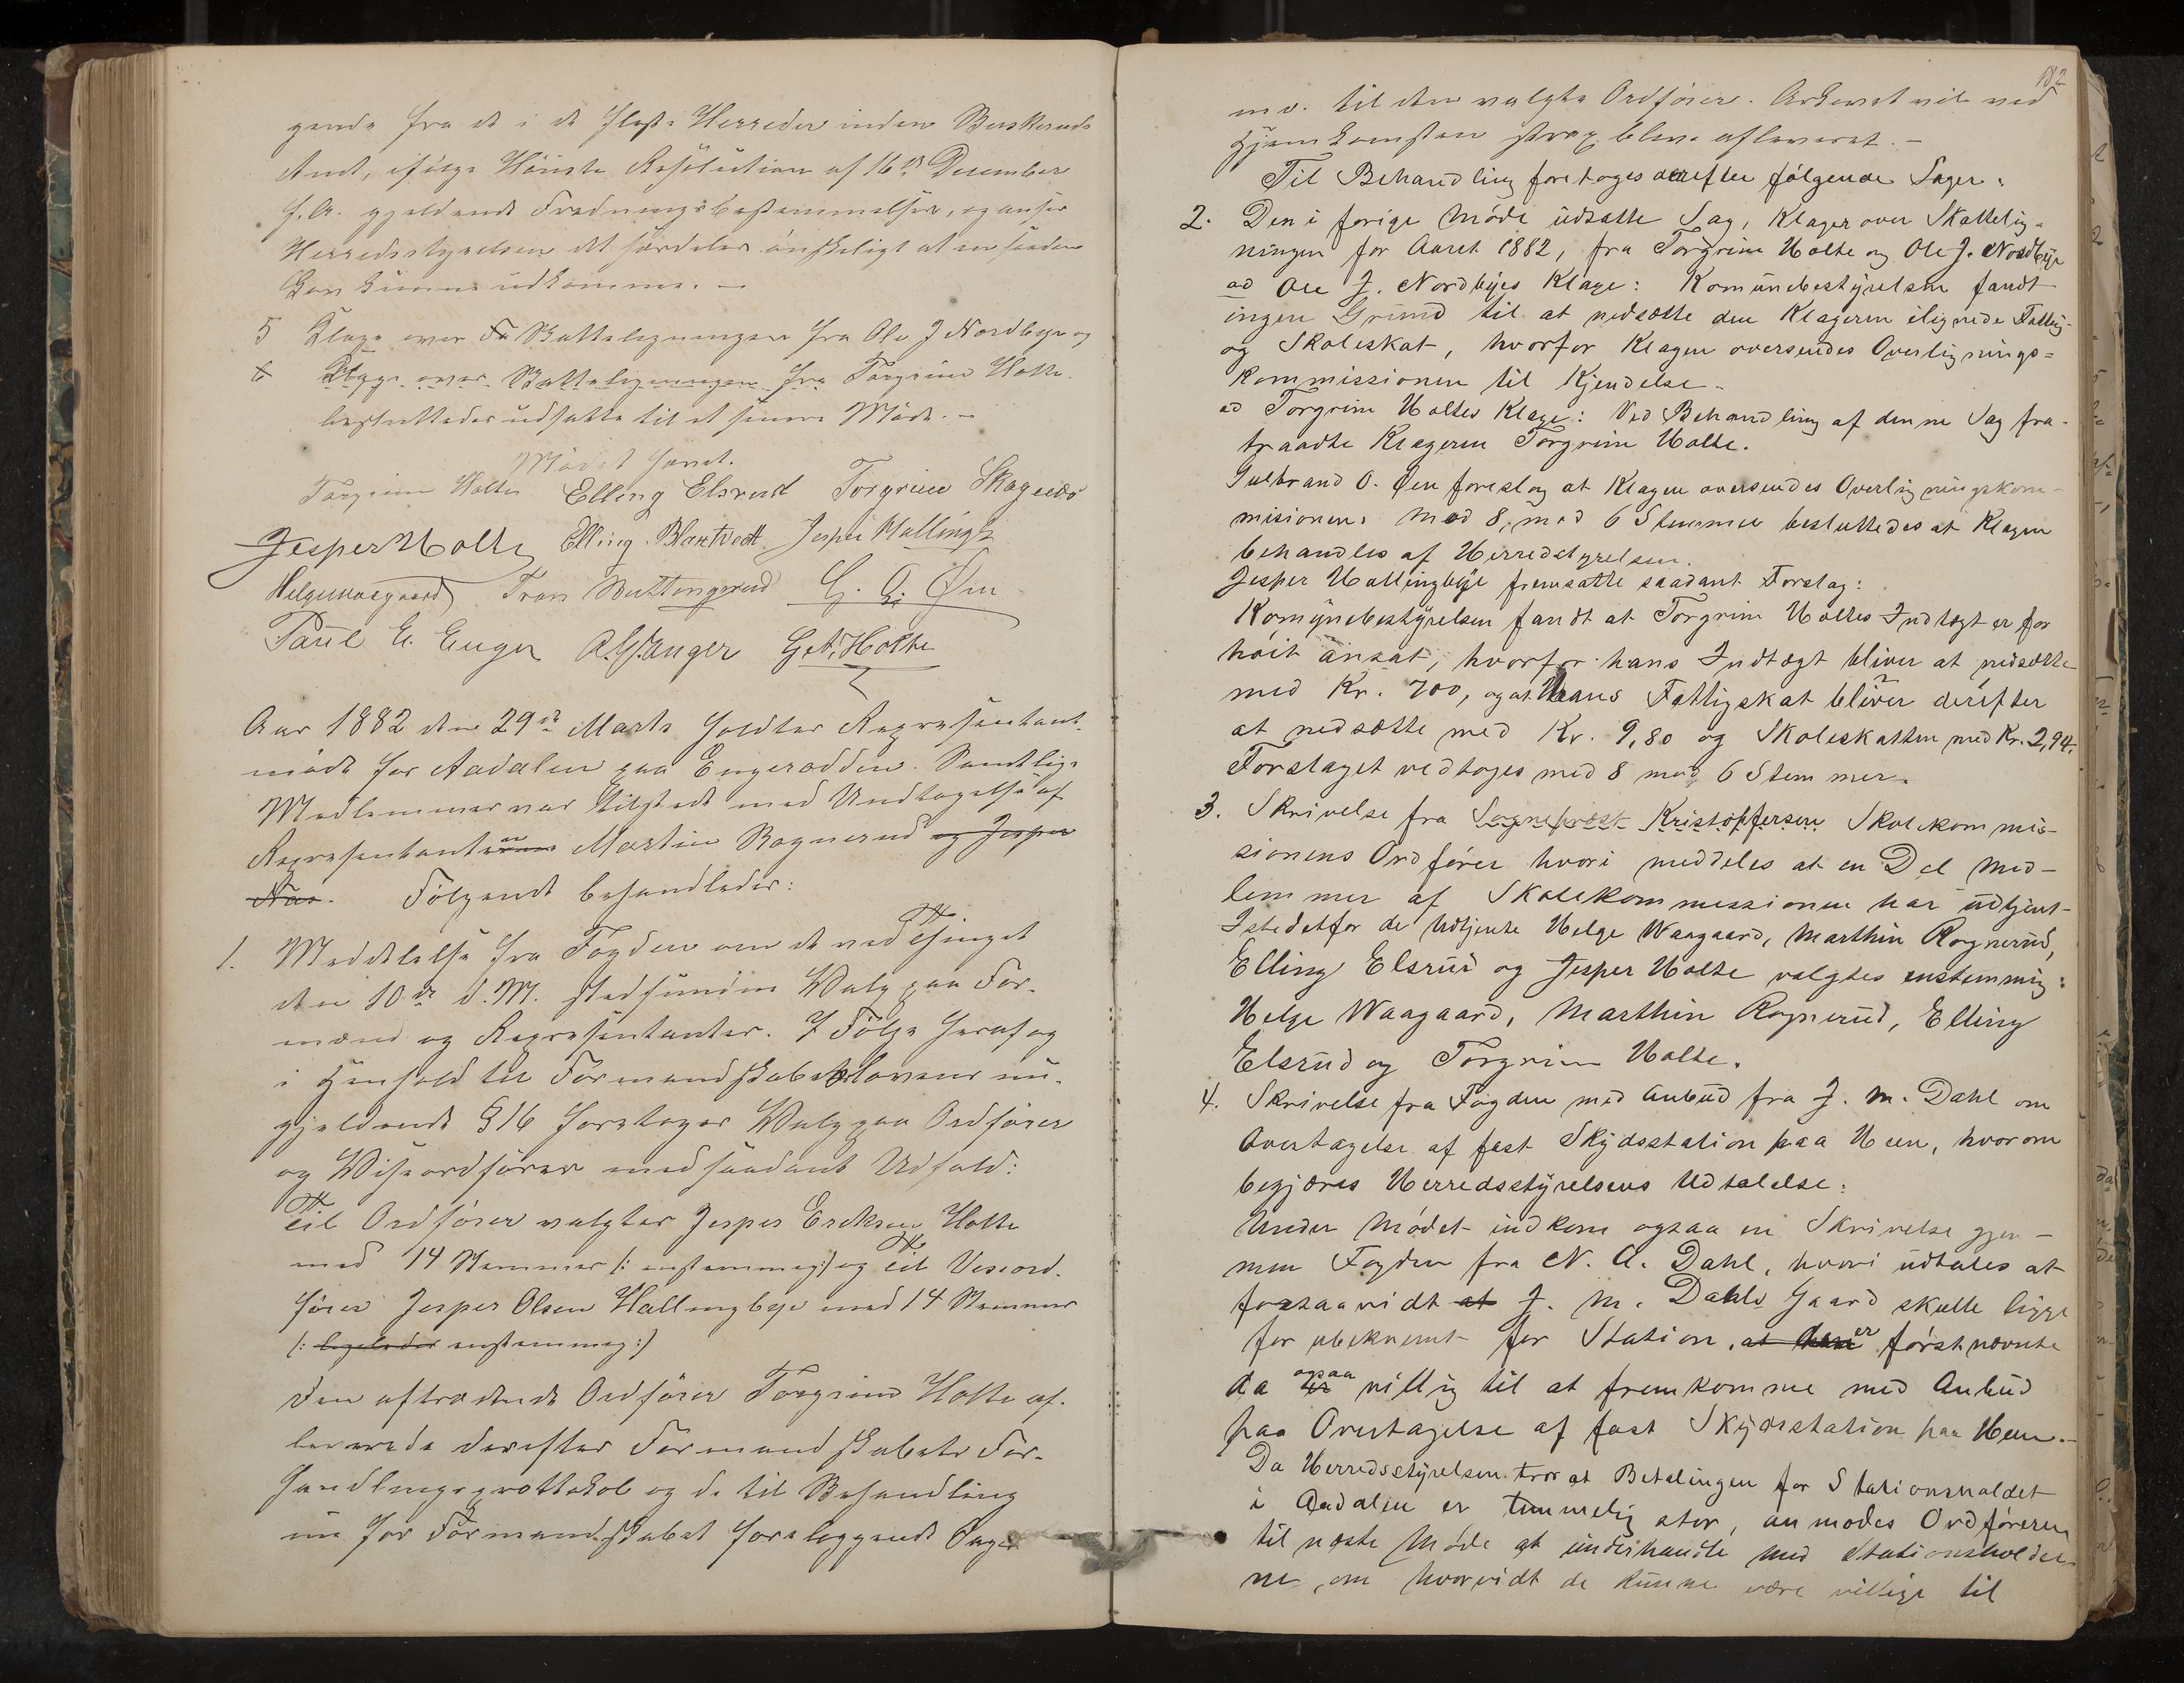 gende fra de i de fleste Herreder inden Buskeruds
Amt, ifølge Høieste Resolution af 16de December
f. A. gjeldende Fredningsbestemmelser, og anser
Herredsstyrelsen det særdeles ønskeligt at en saadan
Lov kunne udkomme. –
5 Klage over Skatteligningen fra Ole J Nordbye og
6 Klage over Skatteligningen fra Torgrim Holte.
besluttedes udsatte til et senere Møde. –
Mødet hævet.
Torgrim Holte Elling Elsrud Torgrim Skagnæs
Jesper Holte Elling Blaxtvedt Jesper Hallingb
Helge Waagaard Tron Buttingsrud G. O. Øen
Paul E. Enger A. G. Anger Gub. Holte
Aar 1882 den 29de Marts holdtes Repræsentant-
møde for Aadalen paa Engerodden. Samtlige
Medlemmer var tilstede med Undtagelse af
Repræsentanten Martin Rognerud og Jesper
Næs. Følgende behandledes:
1. Meddelelse fra Fogden om de ved Thinget
den 10de d. M. stedfundne Valg paa For-
mænd og Repræsentanter. I Følge heraf og
i Henhold til Formandskabslovens nu-
gjeldende § 16 foretoges Valg paa Ordfører
og Viseordfører med saadant Udfald:
Til Ordfører valgtes Jesper Eriksen Holte
med 14 Stemmer (: enstemmig :) og til Viseord-
fører Jesper Olsen Hallingbye med 14 Stemmer
(: ligeledes enstemmig :)
Den aftrædende Ordfører Torgrim Holte af-
leverede derefter Formandskabets For-
handlingsprottokol og de til Behandling
nu for Formandskabet foreliggende Sager
182
m. v. til den valgte Ordfører. Arkivet vil ved
Hjemkomsten strax blive afleveret. –
Til Behandling foretoges derefter følgende Sager:
2. Den i forige Møde udsatte Sag, Klager over Skattelig-
ningen for Aaret 1882, fra Torgrim Holte og Ole J. Nordbye
ad Ole J. Nordbyes Klage: Komunebestyrelsen fandt
ingen Grund til at nedsætte den Klageren ilignede Fattig-
og Skoleskat, hvorfor Klagen oversendes Overlignings-
kommissionen til Kjendelse.
ad Torgrim Holtes Klage: Ved Behandling af denne Sag fra-
traadte Klageren Torgrim Holte.
Gulbrand O. Øen foreslog at Klagen oversendes Overligningskom-
misionen: Med 8, mod 6 Stemmer besluttedes at Klagen
behandles af Herredstyrelsen.
Jesper Hallingbye fremsatte saadant Forslag:
Komunebestyrelsen fandt at Torgrim Holtes Indtægt er for
høit ansat, hvorfor hans Indtægt bliver at nedsætte
med Kr. 700, og at hans Fattigskat bliver derefter
at nedsætte med Kr. 9,80 og Skoleskatten med Kr. 2,94.
Forslaget vedtoges med 8 mod 6 Stemmer.
3. Skrivelse fra Sogneprest Kristoffersen Skolekommis-
sionens Ordfører hvori meddeles at en Del Med-
lemmer af Skolekommissionen har udtjent-
Istedetfor de udtjente Helge Waagaard, Marthin Rognerud,
Elling Elsrud og Jesper Holte valgtes enstemmig:
Helge Waagaard, Marthin Rognerud, Elling
Elsrud og Torgrim Holte.
4. Skrivelse fra Fogden med Anbud fra J. M. Dahl om
Overtagelse af fast Skydsstation paa Heen, hvorom
begjæres Herredsstyrelsens Udtalelse:
Under Mødet indkom ogsaa en Skrivelse gjen-
nem Fogden fra N. A. Dahl, hvori udtales at
forsaavidt at J. M. Dahls Gaard skulle ligge
for ubekvemt for Station, at han er førstnævnte
da ogsaa villig til at fremkomme med Anbud
paa Overtagelse af fast Skydsstation paa Heen. –
Da Herredsstyrelsen tror at Betalingen for Stationsholdet
i Aadalen er temmelig stor, anmodes Ordføreren
til næste Møde at underhandle med Stationsholder-
ne, om hvorvidt de kunne være villige til